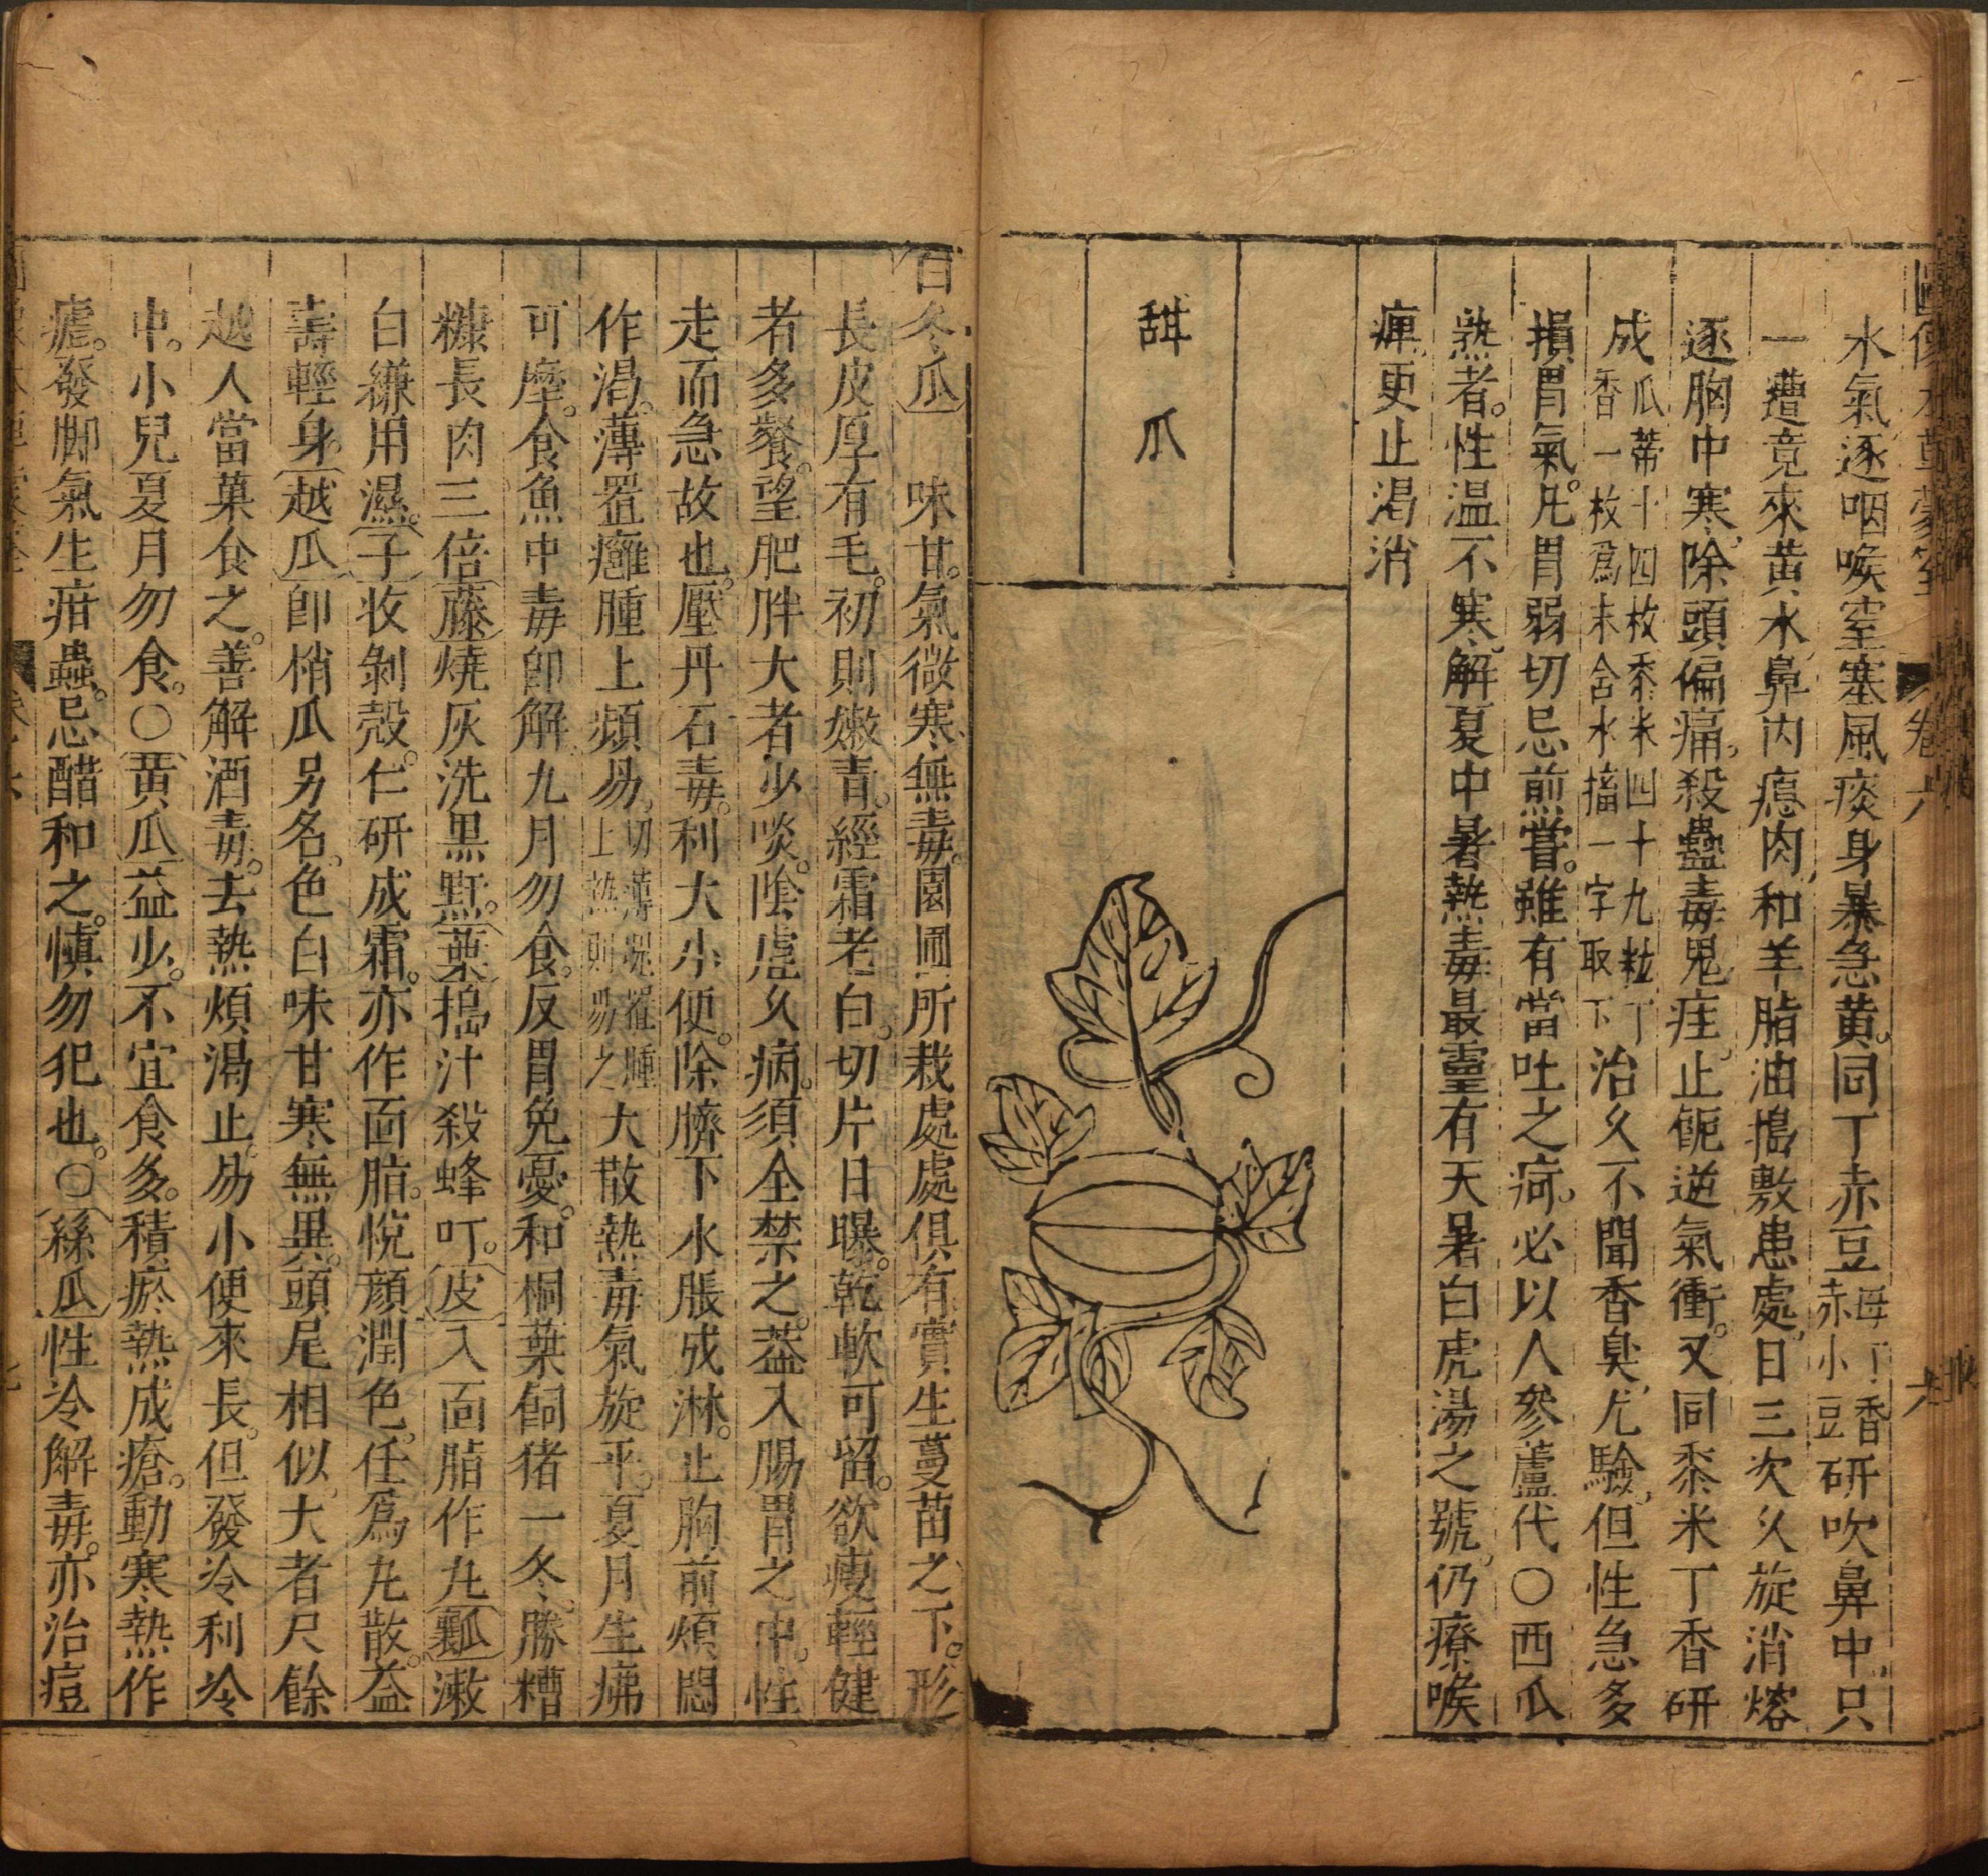 水氣逐咽喉窒塞風痰身暴急黄。同丁赤豆毎丁香赤小豆研吹鼻中、只
一遭竟來黄水、鼻内瘜肉、和羊脂油搗敷患處、日三次久旋消熔
逐胸中寒、除頭偏痛、殺蠱毒鬼疰、止䶧逆氣衝。又同黍米丁香研
成瓜蒂十四枚黍米四十九粒丁香一枚爲末含水搐一字取下治久不聞香臭、尤驗、但性急多
損胃氣。凡胃弱切忌煎嘗。雖有當吐之疴、必以人參蘆代〇西瓜
熟者。性温不寒、解夏中暑熱毒最靈有天暑白虎湯之號、仍療喉
痺、更止渴消
甜瓜
白冬瓜　味甘。氣微寒、無毒。園圃所栽處處俱有實生蔓苗之下。形
長皮厚有毛。初則嫩青。經霜老白。切片日曝。乾軟可留。欲瘦輕健
者多餐。望肥胖大者少啖。陰虚久病。須全禁之。葢入腸胃之中。性
走而急故也。壓丹石毒。利大小便。除臍下水脹成淋。止胸前煩悶
作渴。薄置癰腫上頻易、切薄塊置腫上熱則易之大散熱毒氣旋平。夏月生疿
可摩。食魚中毒卽解。九月勿食。反胃免憂。和桐葉飼猪一冬、勝糟
糠長肉三倍藤燒灰洗黒䵟。葉搗汁殺蜂叮。皮入面脂作丸瓤潄
白縑用濕。子收剝殻。仁研成霜。亦作面脂。悅顔潤色。任爲丸散。益
壽輕身。越瓜卽梢瓜另名。色白味甘寒無異。頭尾相似。大者尺餘
越人當菓食之。善解酒毒。去熱煩渴止。易小便來長。但發冷利冷
中。小兒夏月勿食。〇黄瓜益少。不宜食多。積瘀熱成瘡。動寒熱作
瘧。發脚氣生疳蟲。忌醋和之。愼勿犯也。〇絲瓜性冷解毒。亦治痘
卷六
六